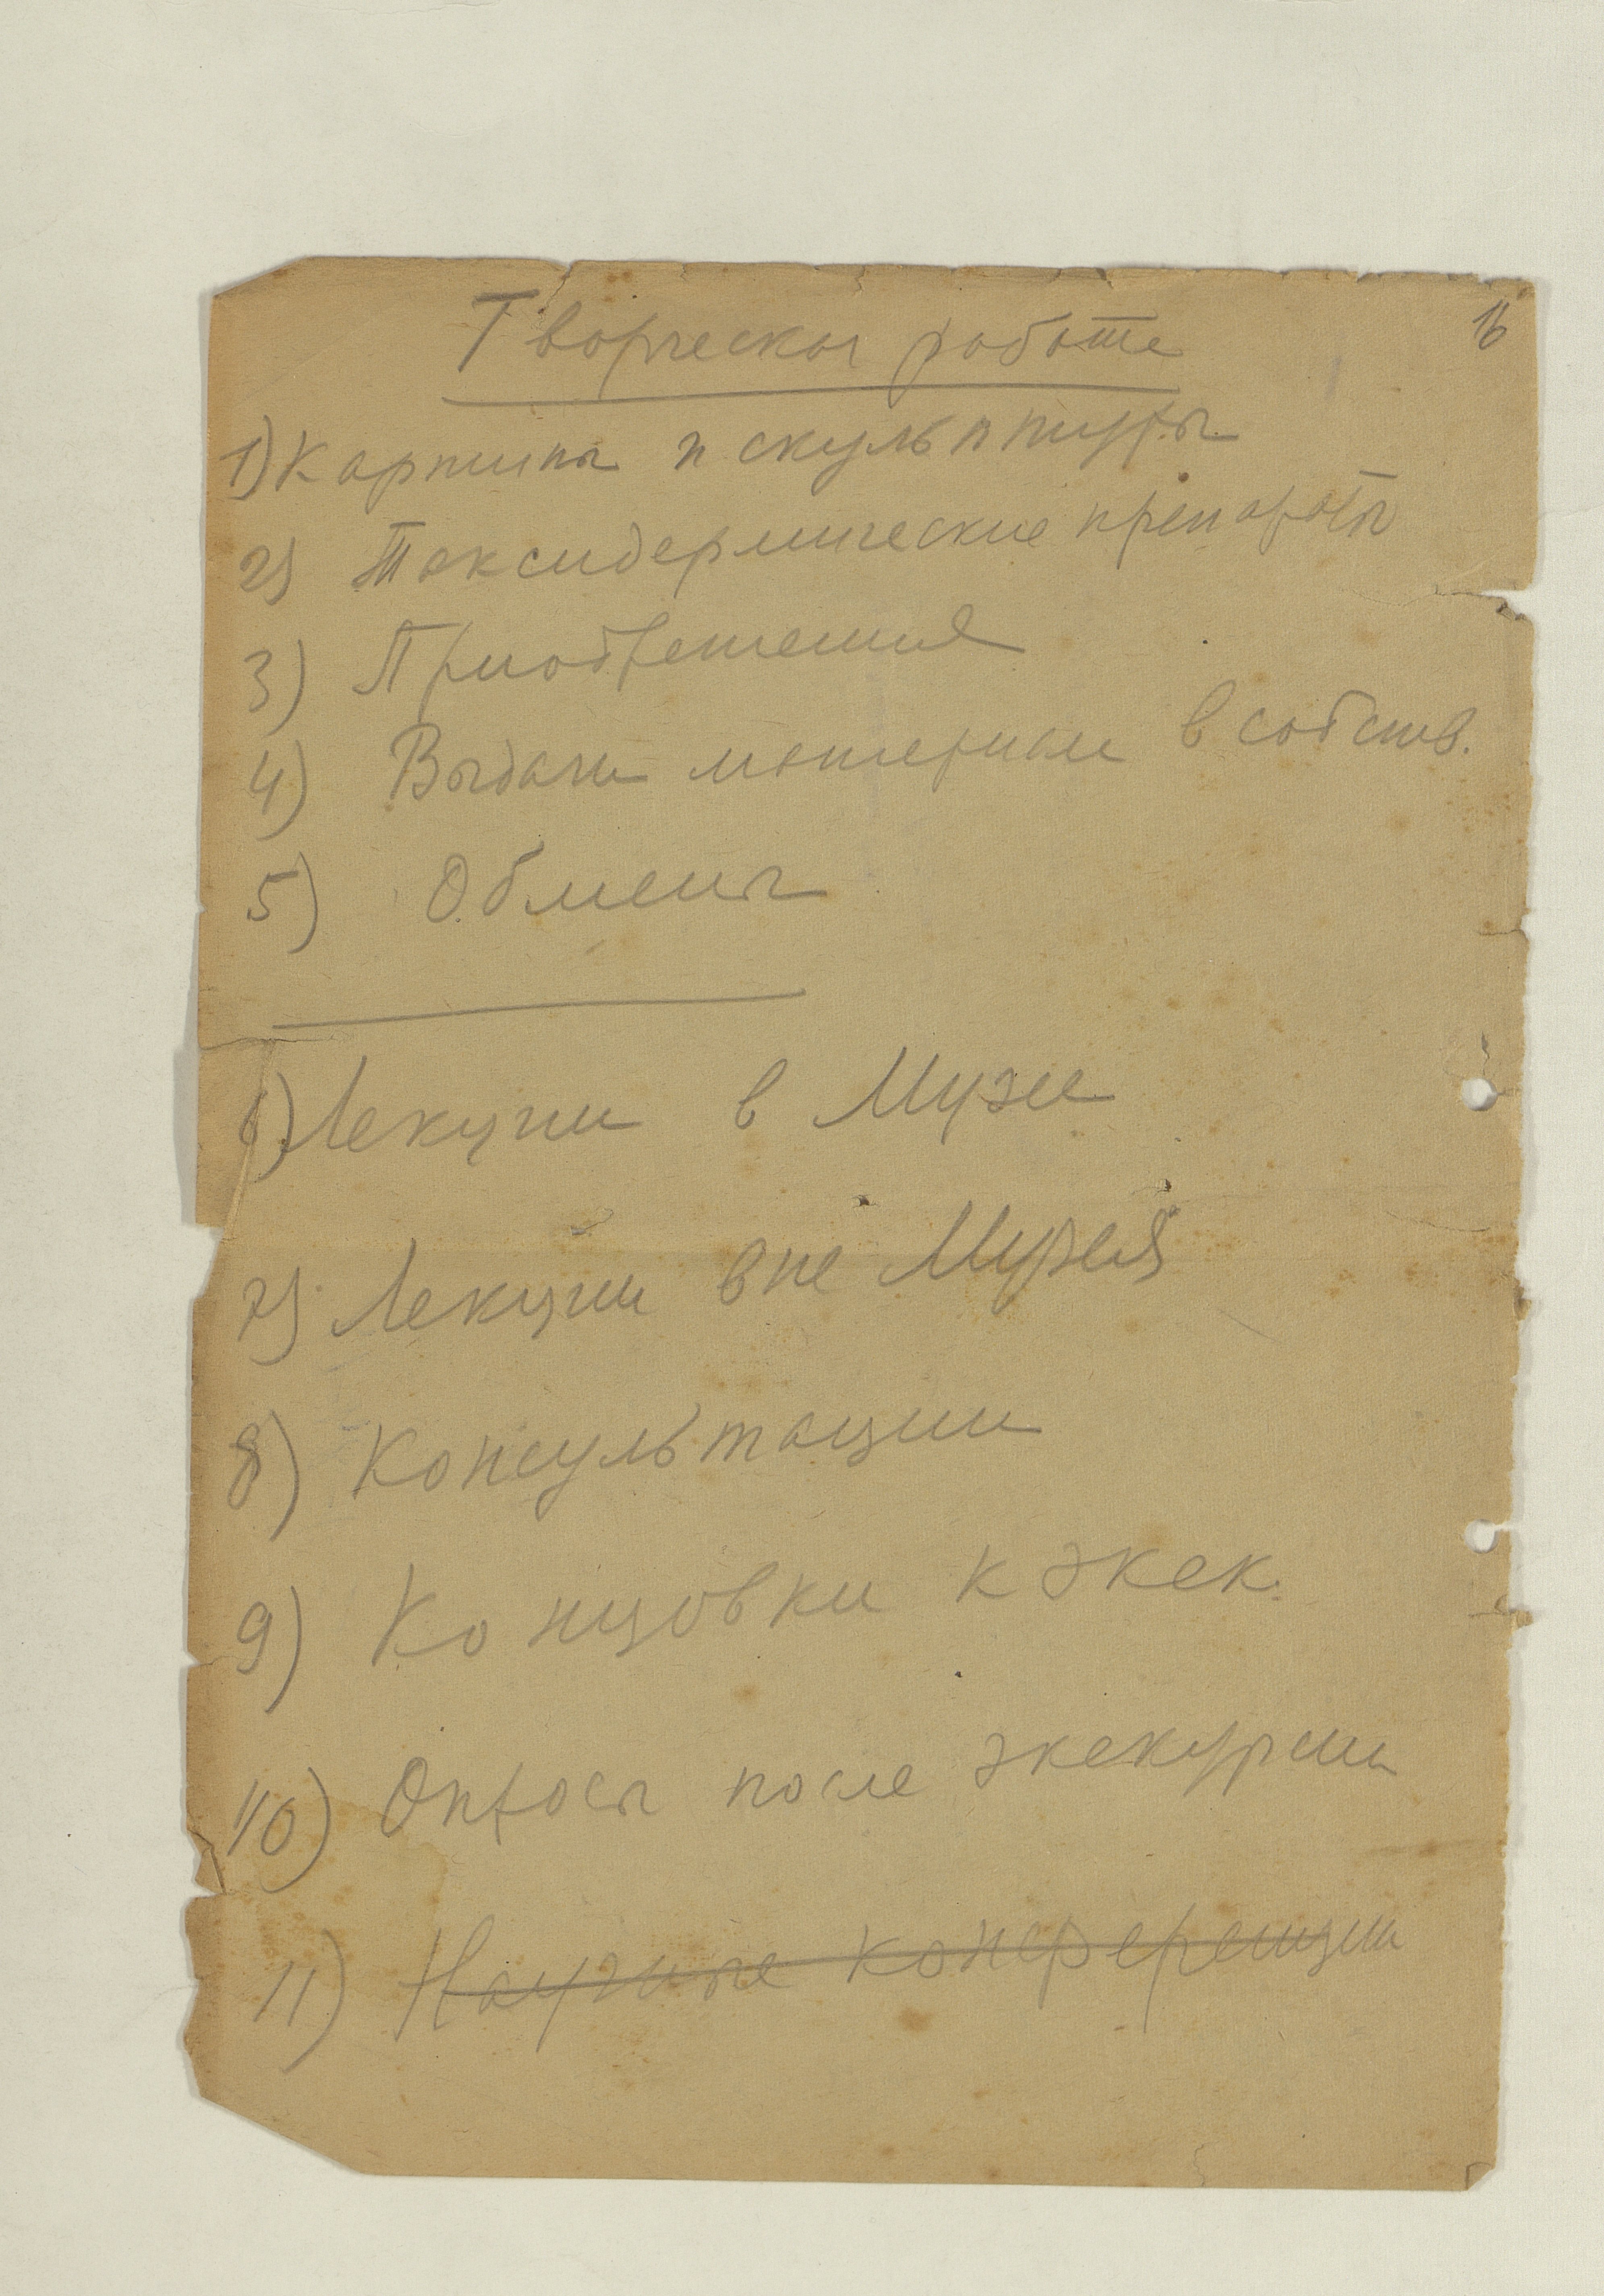 16
Творческая работа
1) Картины и скульптуры
2) Таксидермические препараты
3) Приобретения
4) Выдачи материала в собств.
5) Обмены
6) Лекции в Музее
7) Лекции вне Музея
8) Консультации
9) Концовки к экск.
10) Опросы после экскурсии
11) Научные конференции